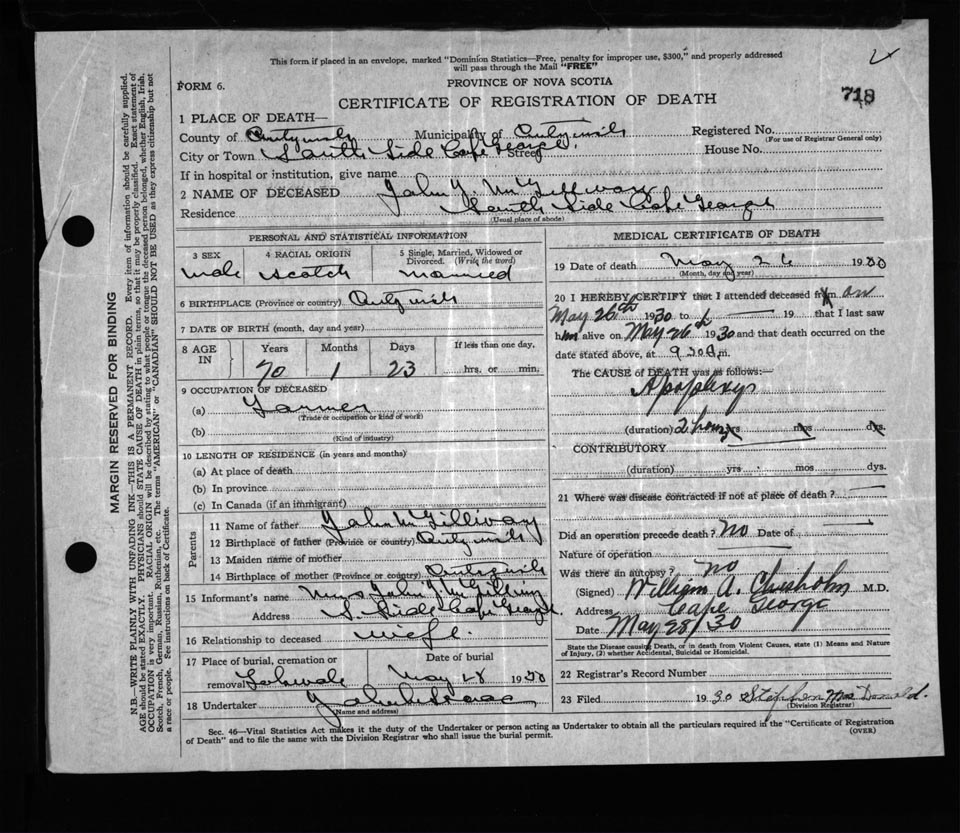 This form if placed in an envelope, marked "Dominion Statistics—Free, penalty for improper use, $300," and properly addressed
will pass through the Mail "FREE"
FORM 6.
PROVINCE OF NOVA SCOTIA
718
CERTIFICATE OF REGISTRATION OF DEATH
1 PLACE OF DEATH—
County of Antigonish Municipality of Antigonish Registered No.
(For use of Registrar General only)
City or Town South Side Cape George Street House No.
If in hospital or institution, give name
2 NAME OF DECEASED John J. McGillivray
Residence South Side Cape George
(Usual place of abode)
PERSONAL AND STATISTICAL INFORMATION
3 SEX 4 RACIAL ORIGIN 5 Single, Married, Widowed or
Divorced. (Write the word)
Male Scotch Married
6 BIRTHPLACE (Province or country) Antigonish
7 DATE OF BIRTH (month, day and year)
8 AGE IN Years Months Days If less than one day,
70 1 23 hrs. or min.
9 OCCUPATION OF DECEASED
(a) Farmer
(Trade or occupation or kind of work)
(b)
(Kind of industry)
10 LENGTH OF RESIDENCE (in years and months)
(a) At place of death
(b) In province
(c) In Canada (if an immigrant)
Parents
11 Name of father John McGillivray
12 Birthplace of father (Province or country) Antigonish
13 Maiden name of mother
14 Birthplace of mother (Province or country) Antigonish
15 Informant's name Mrs John J McGillivray
Address S. Side Cape George
16 Relationship to deceased wife
17 Place of burial, cremation or Date of burial
removal May 28 1930
18 Undertaker John
(Name and address)
MEDICAL CERTIFICATE OF DEATH
19 Date of death May 26 1930
(Month, day and year)
20 I HEREBY CERTIFY that I attended deceased from on
May 26th 1930 to — 19 — that I last saw
him alive on May 26th 1930 and that death occurred on the
date stated above, at 9.30 a.m.
The CAUSE of DEATH was as follows:—
Apoplexy
(duration) 2 hours yrs mos dys.
CONTRIBUTORY
(duration) yrs mos dys.
21 Where was disease contracted if not at place of death?
Did an operation precede death? No Date of
Nature of operation
Was there an autopsy? no
(Signed) William A. Chisholm M.D.
Address Cape George
Date May 28/30
State the Disease causing Death, or in death from Violent Causes, state (1) Means and Nature
of Injury, (2) whether Accidental, Suicidal or Homicidal.
22 Registrar's Record Number
23 Filed 1930 Stephen McDonald.
(Division Registrar)
Sec. 46—Vital Statistics Act makes it the duty of the Undertaker or person acting as Undertaker to obtain all the particulars required in the "Certificate of Registration
of Death" and to file the same with the Division Registrar who shall issue the burial permit.
(OVER)
MARGIN RESERVED FOR BINDING
N.B.—WRITE PLAINLY WITH UNFADING INK—THIS IS A PERMANENT RECORD. Every item of information should be carefully supplied.
AGE should be stated EXACTLY. PHYSICIANS should STATE CAUSE OF DEATH in plain terms, so that it may be properly classified. Exact statement of
OCCUPATION is very important. RACIAL ORIGIN will be described by stating to what people or tongue the deceased person belonged, whether English, Irish,
Scotch, French, German, Russian, Ruthenian, etc. The terms "AMERICAN" or "CANADIAN" SHOULD NOT BE USED as they express citizenship but not
a race or people. See instructions on back of Certificate.